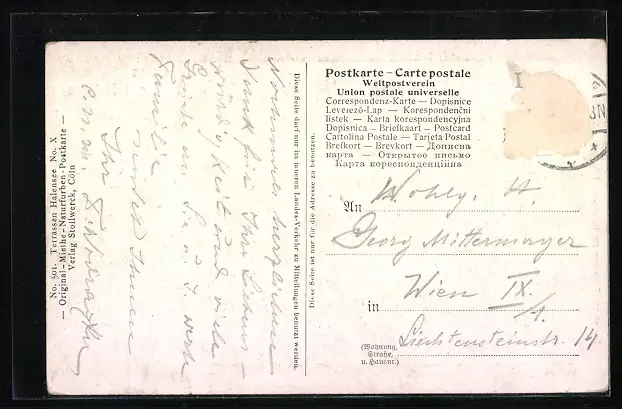 No. 501. Terrassen Halensee No. X
— Original-Miethe-Naturfarben-Postkarte —
Verlag Stollwerck, Cöln
Nochmals herzlichen
Dank für Ihre Liebens-
würdigkeit und viele
Grüße an Sie u. I. werte
Familie
Ihr
Diese Seite darf nur im inneren Landes-Verkehr zu Mitteilungen benutzt werden.
Diese Seite ist nur für die Adresse zu benutzen.
Postkarte – Carte postale
Weltpostverein
Union postale universelle
Correspondenz-Karte — Dopisnice
Levelező-Lap — Korespondenční
listek — Karta korespondencyjna
Dopisnica — Briefkaart — Postcard
Cartolina Postale — Tarjeta Postal
Brefkort — Brevkort — Дописна
карта — Открытое письмо
Карта кореспонденційна
An Wohlg. H.
Georg Mittermayer
in Wien IX/1.
Liechtensteinstr. 14
(Wohnung,
Straße,
u. Hausnr.)